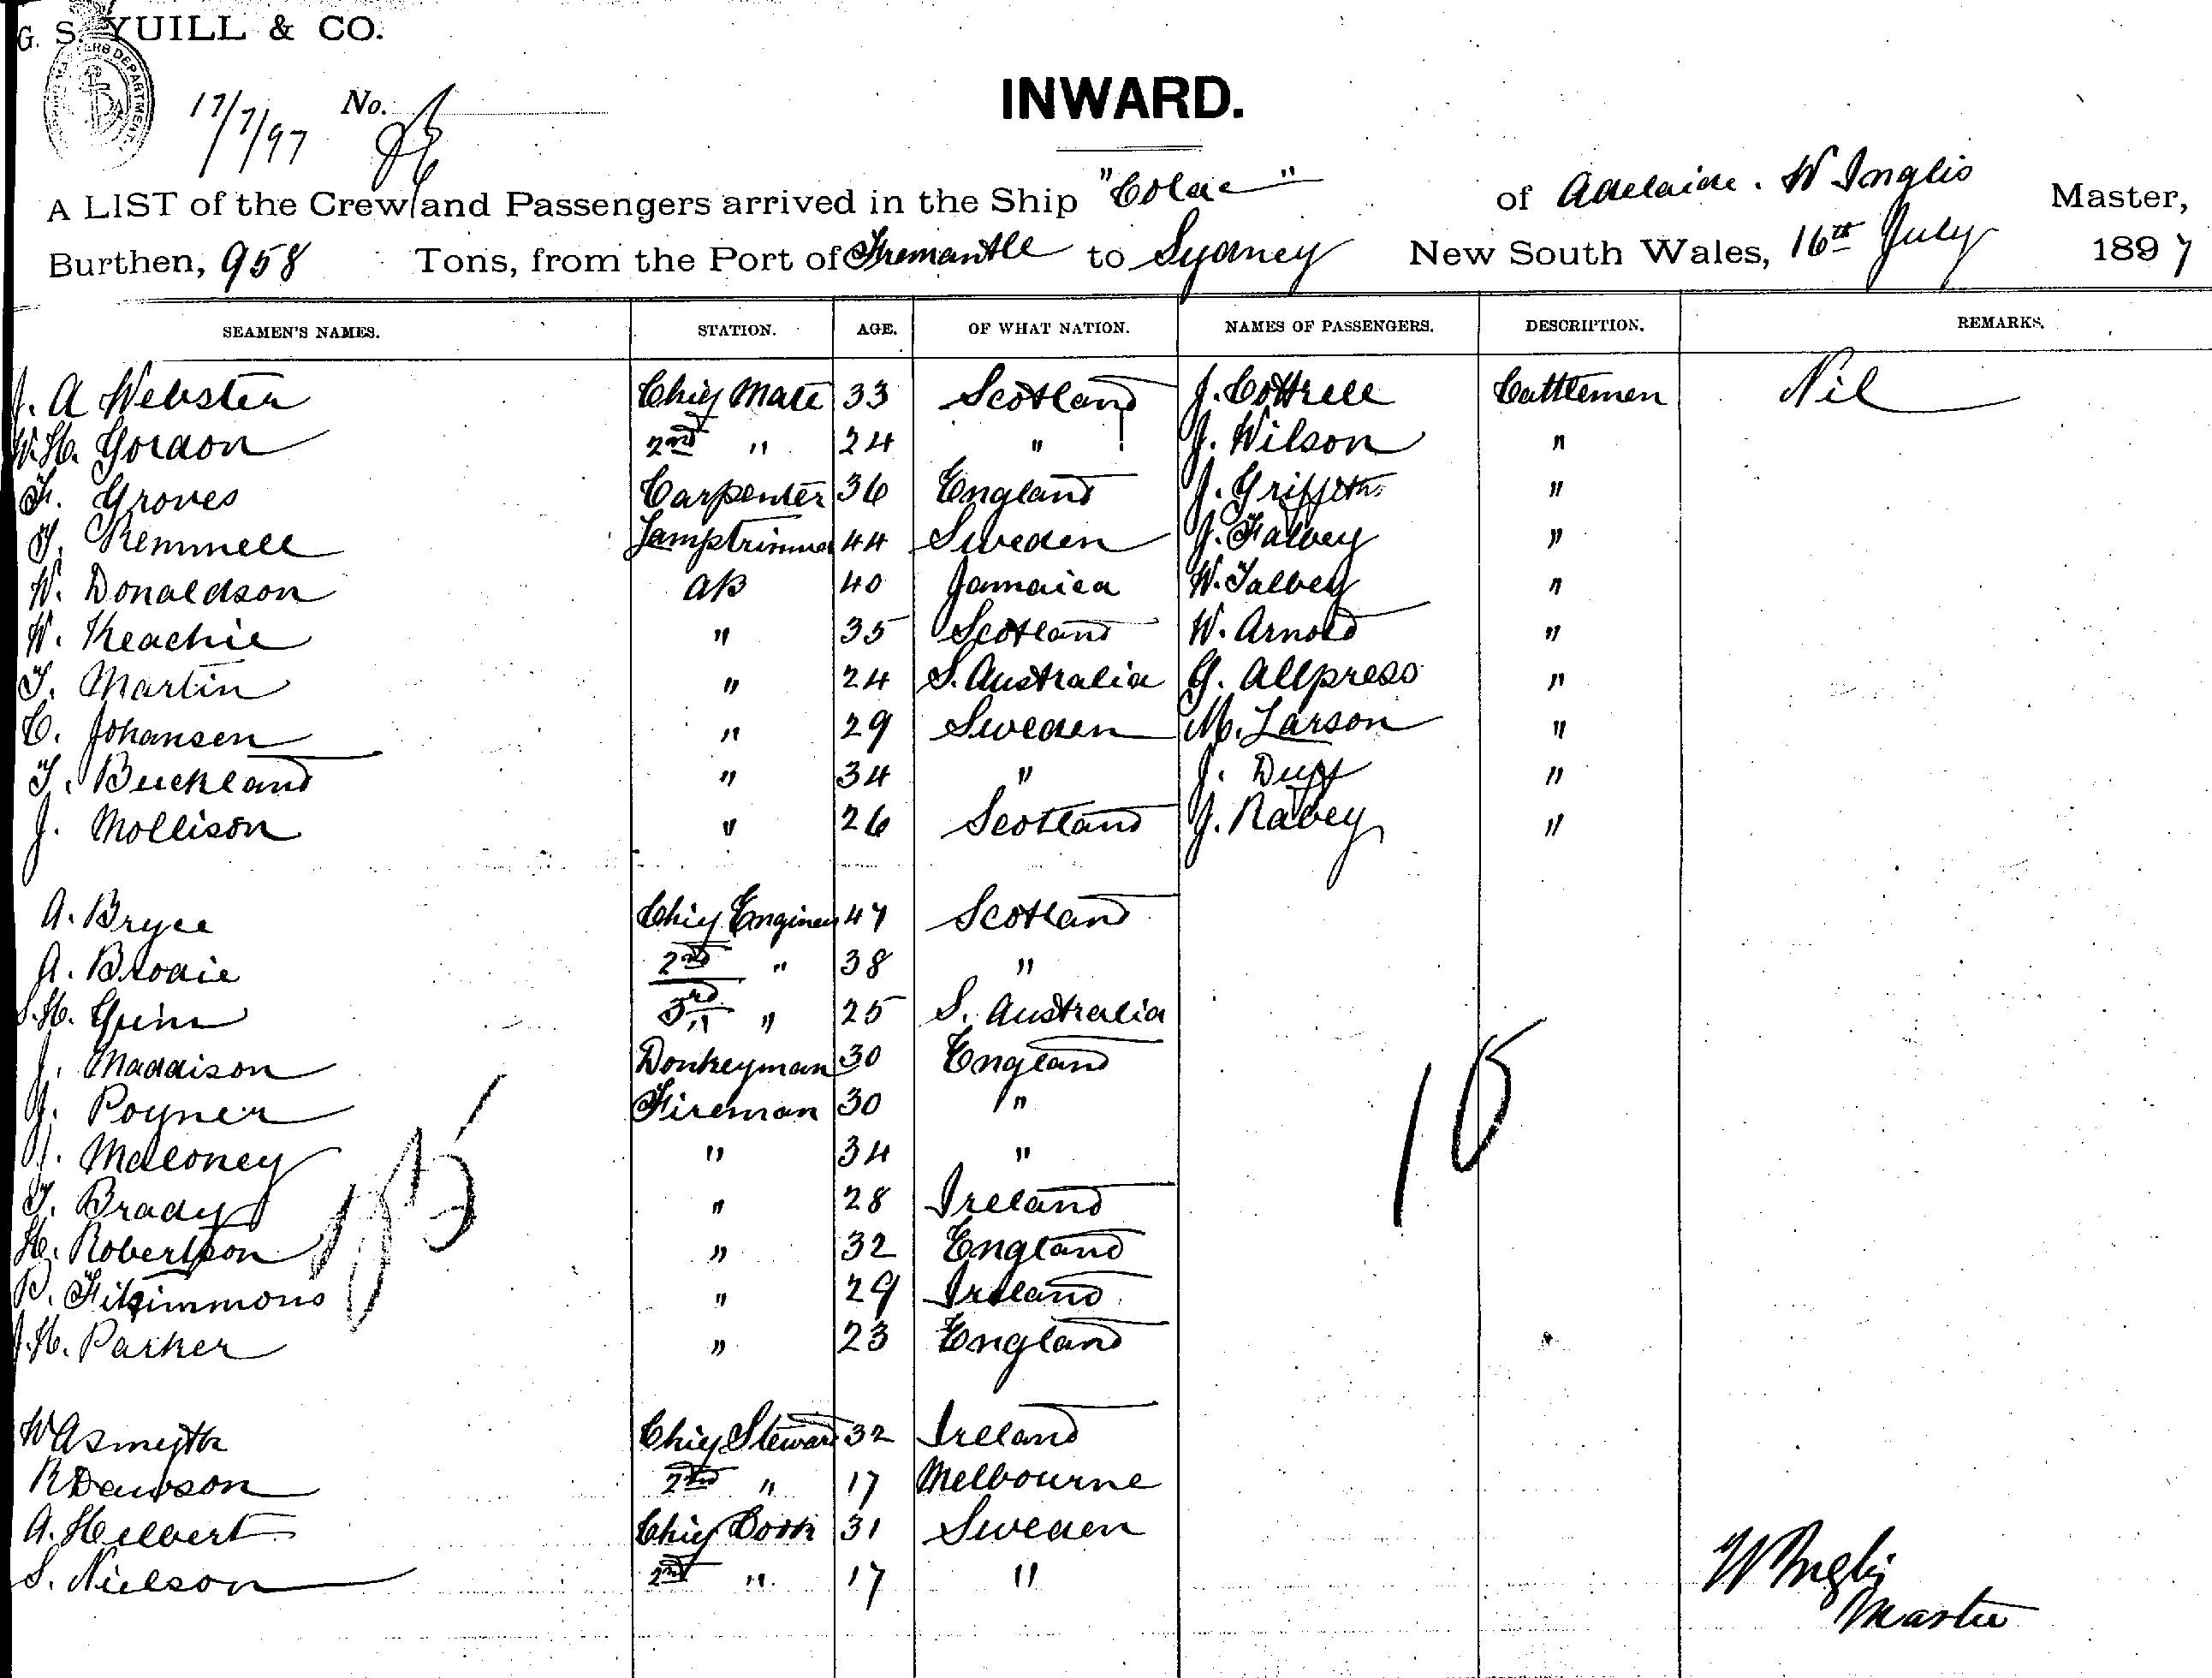 G. S. YUILL & CO.
17/7/97 No.
INWARD.
A LIST of the Crew and Passengers arrived in the Ship "Colac" of Adelaide. W Inglis Master,
Burthen, 958 Tons, from the Port of Fremantle to Sydney New South Wales, 16th July 1897
SEAMEN'S NAMES. STATION. AGE. OF WHAT NATION. NAMES OF PASSENGERS. DESCRIPTION. REMARKS.
J. A Webster Chief Mate 33 Scotland J. Cottrell Cattlemen Nil
W. H. Gordon 2nd " 24 " J. Wilson "
F. Groves Carpenter 36 England J. Griffith "
T. Remmell Lamptrimmer 44 Sweden J. Falvey "
W. Donaldson AB 40 Jamaica W. Talbey "
W. Keachie " 35 Scotland W. Arnold "
T. Martin " 24 S. Australia G. Allpress "
C. Johansen " 29 Sweden M. Larson "
T. Buckland " 34 " J. Duff "
J. Mollison " 26 Scotland J. Rabey "
A. Bryce Chief Engineer 47 Scotland
A. Brodie 2nd " 38 "
S. H. Guinn 3rd " 25 S. Australia
J. Maddison Donkeyman 30 England
J. Poyner Fireman 30 "
J. Maloney " 34 "
T. Brady " 28 Ireland
H. Robertson " 32 England
P. Fitzimmons " 29 Ireland
J. H. Parker " 23 England
10
W A Smyth Chief Steward 32 Ireland
R Dawson 2nd " 17 Melbourne
A. Helbert Chief Cook 31 Sweden
S. Nielson 2nd " 17 "
W Inglis
Master